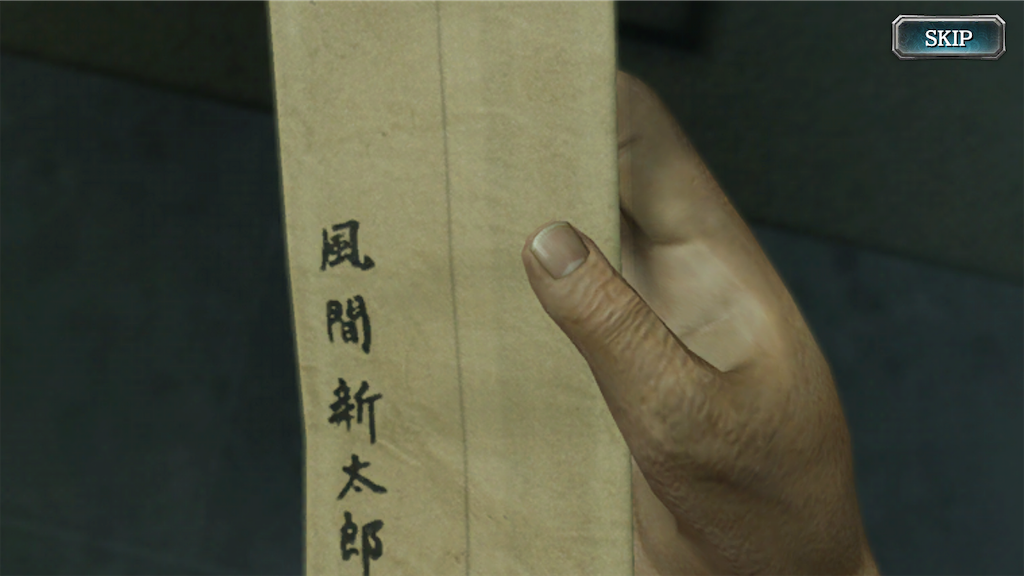 SKIP
風間新太郎